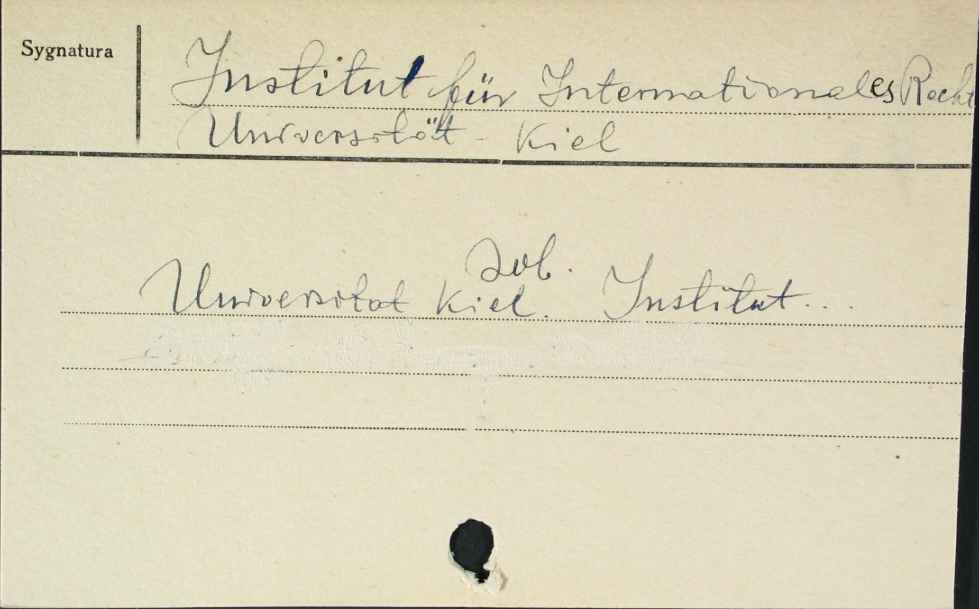 Sygnatura
Institut für Internationales Recht
Universität - Kiel
zob.
Universitat Kiel. Institut...